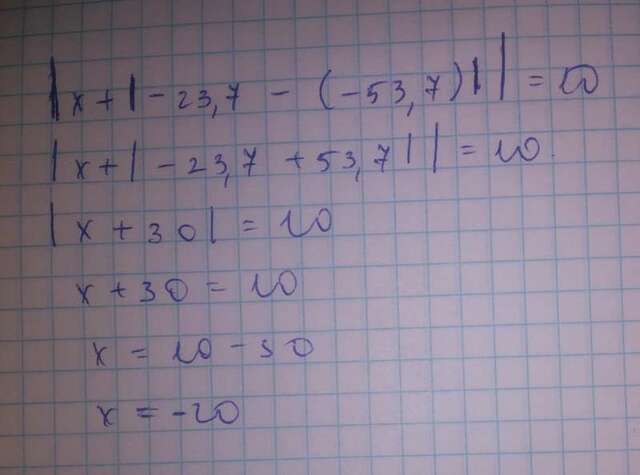 |x + |-23,7 - (-53,7)|| = 10
|x + |-23,7 + 53,7|| = 10
|x + 30| = 10
x + 30 = 10
x = 10 - 30
x = -20